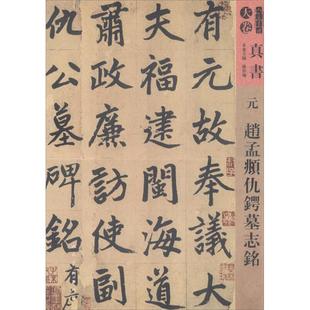 大卷
真書
元 趙孟頫仇鍔墓志銘
有元故奉議大
夫福建閩海道
肅政廉訪使副
仇公墓碑銘有序